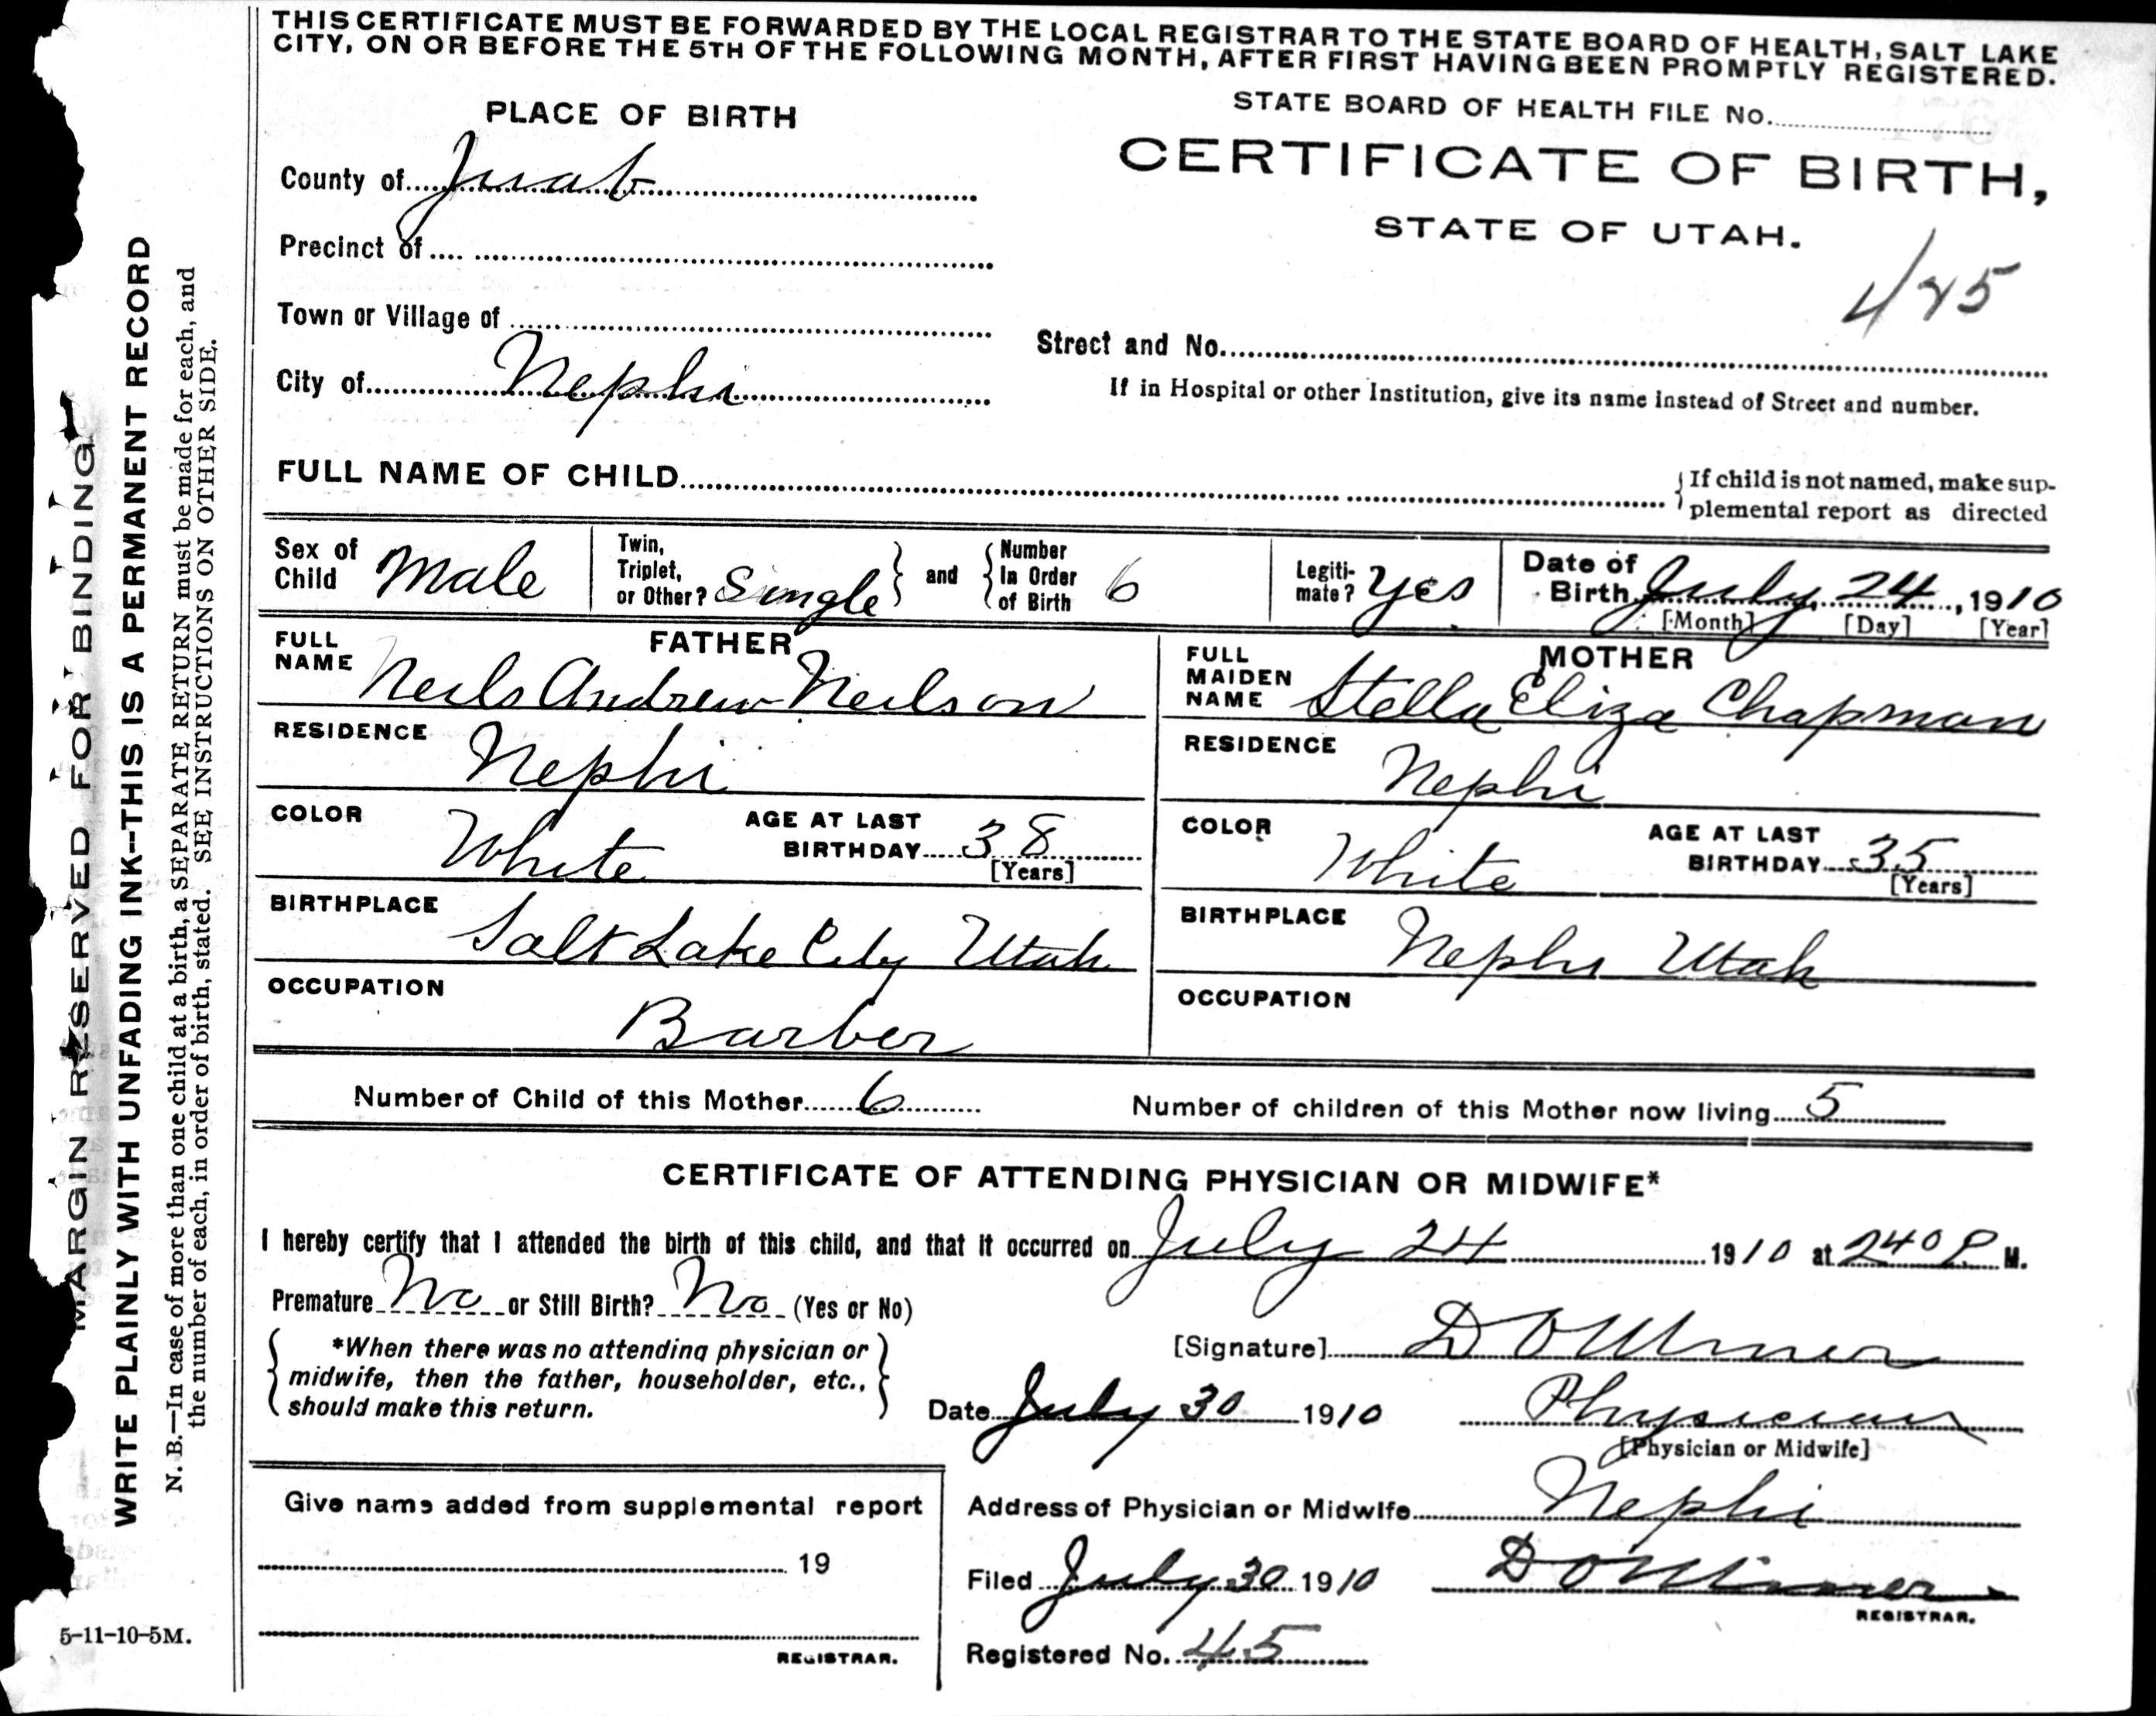 THIS CERTIFICATE MUST BE FORWARDED BY THE LOCAL REGISTRAR TO THE STATE BOARD OF HEALTH, SALT LAKE
CITY, ON OR BEFORE THE 5TH OF THE FOLLOWING MONTH, AFTER FIRST HAVING BEEN PROMPTLY REGISTERED.
PLACE OF BIRTH
STATE BOARD OF HEALTH FILE No.
CERTIFICATE OF BIRTH,
STATE OF UTAH.
County of Juab
Precinct of
Town or Village of
City of Nephi
Street and No.
If in Hospital or other Institution, give its name instead of Street and number.
FULL NAME OF CHILD
{ If child is not named, make sup-
plemental report as directed
Sex of Child Male
Twin, Triplet, or Other? Single } and { Number In Order of Birth 6
Legiti-mate? Yes
Date of Birth July 24, 1910
[Month] [Day] [Year]
FATHER
FULL NAME Neils Andrew Neilson
RESIDENCE Nephi
COLOR White AGE AT LAST BIRTHDAY 38
[Years]
BIRTHPLACE Salt Lake City Utah
OCCUPATION Barber
MOTHER
FULL MAIDEN NAME Stella Eliza Chapman
RESIDENCE Nephi
COLOR White AGE AT LAST BIRTHDAY 35
[Years]
BIRTHPLACE Nephi Utah
OCCUPATION
Number of Child of this Mother 6 Number of children of this Mother now living 5
CERTIFICATE OF ATTENDING PHYSICIAN OR MIDWIFE*
I hereby certify that I attended the birth of this child, and that it occurred on July 24 1910 at 240 P M.
Premature No or Still Birth? No (Yes or No)
{ *When there was no attending physician or }
midwife, then the father, householder, etc.,
should make this return.
[Signature] D O
Date July 30 1910 Physician
[Physician or Midwife]
Give name added from supplemental report
19
REGISTRAR.
Address of Physician or Midwife Nephi
Filed July 30 1910 D O
REGISTRAR.
Registered No. 45
MARGIN RESERVED FOR BINDING
WRITE PLAINLY WITH UNFADING INK--THIS IS A PERMANENT RECORD
N. B.—In case of more than one child at a birth, a SEPARATE RETURN must be made for each, and
the number of each, in order of birth, stated. SEE INSTRUCTIONS ON OTHER SIDE.
5-11-10-5M.